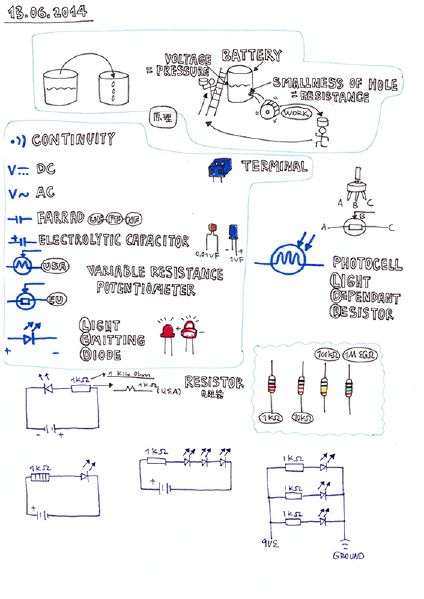 13.06.2014
VOLTAGE
= PRESSURE
BATTERY
SMALLNESS OF HOLE
= RESISTANCE
WORK
原理
CONTINUITY
V DC
V~ AC
FARRAD
ELECTROLYTIC CAPACITOR
0.01uF
- +
1uF
TERMINAL
A B C
A B C
USA
VARIABLE RESISTANCE
POTENTIOMETER
EU
PHOTOCELL
LIGHT
DEPENDANT
RESISTOR
LIGHT
EMITTING
DIODE
+ -
+ -
1 Kilo Ohm
1KΩ
1KΩ (USA)
RESISTOR
- +
1KΩ
10KΩ
100KΩ
1KΩ
+
1KΩ
+
1KΩ
1KΩ
1KΩ
9VE
GROUND